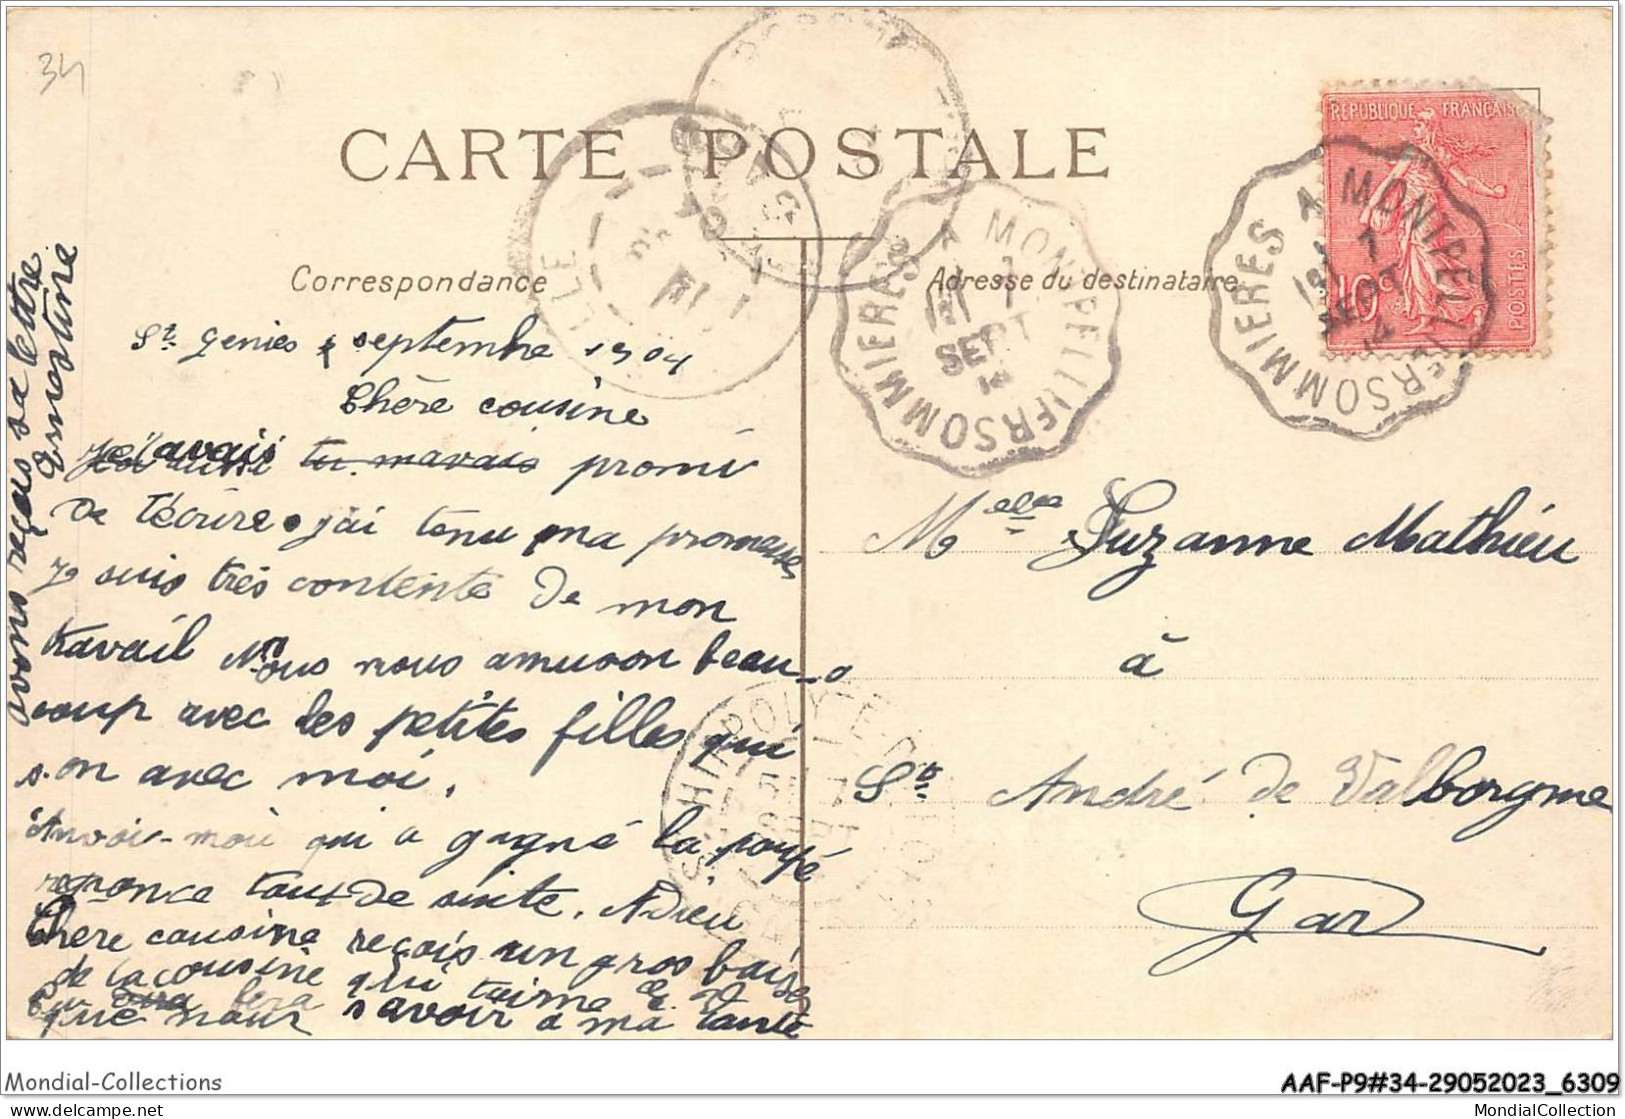 34
CARTE POSTALE
Correspondance
Adresse du destinataire
RÉPUBLIQUE FRANÇAISE
10
POSTES
SOMMIÈRES A MONTPELLIER
1
SEPT
SOMMIERES A MONTPELLIER
1
SEPT
St Genies septembre 1904
Chère cousine
Je avais tu mavais promi
de técrire. j'ai tenu ma promesse
je suis très contente de mon
travail Nous nous amuson beau-
coup avec les petites filles qui
s.on avec moi.
qui a gagné la poupé
reponce tout de suite. Adieu
Chère cousine reçois un gros baiser
de la cousine qui taime E. V.
Tu fera
que nous
savoir a ma tante
avons reçus sa lettre
Ernestine
Melle Suzanne Mathieu
à
St André de Valborgme
Gard
HIPPOLYTE
Mondial-Collections
AAF-P9#34-29052023_6309
delcampe.net
MondialCollection